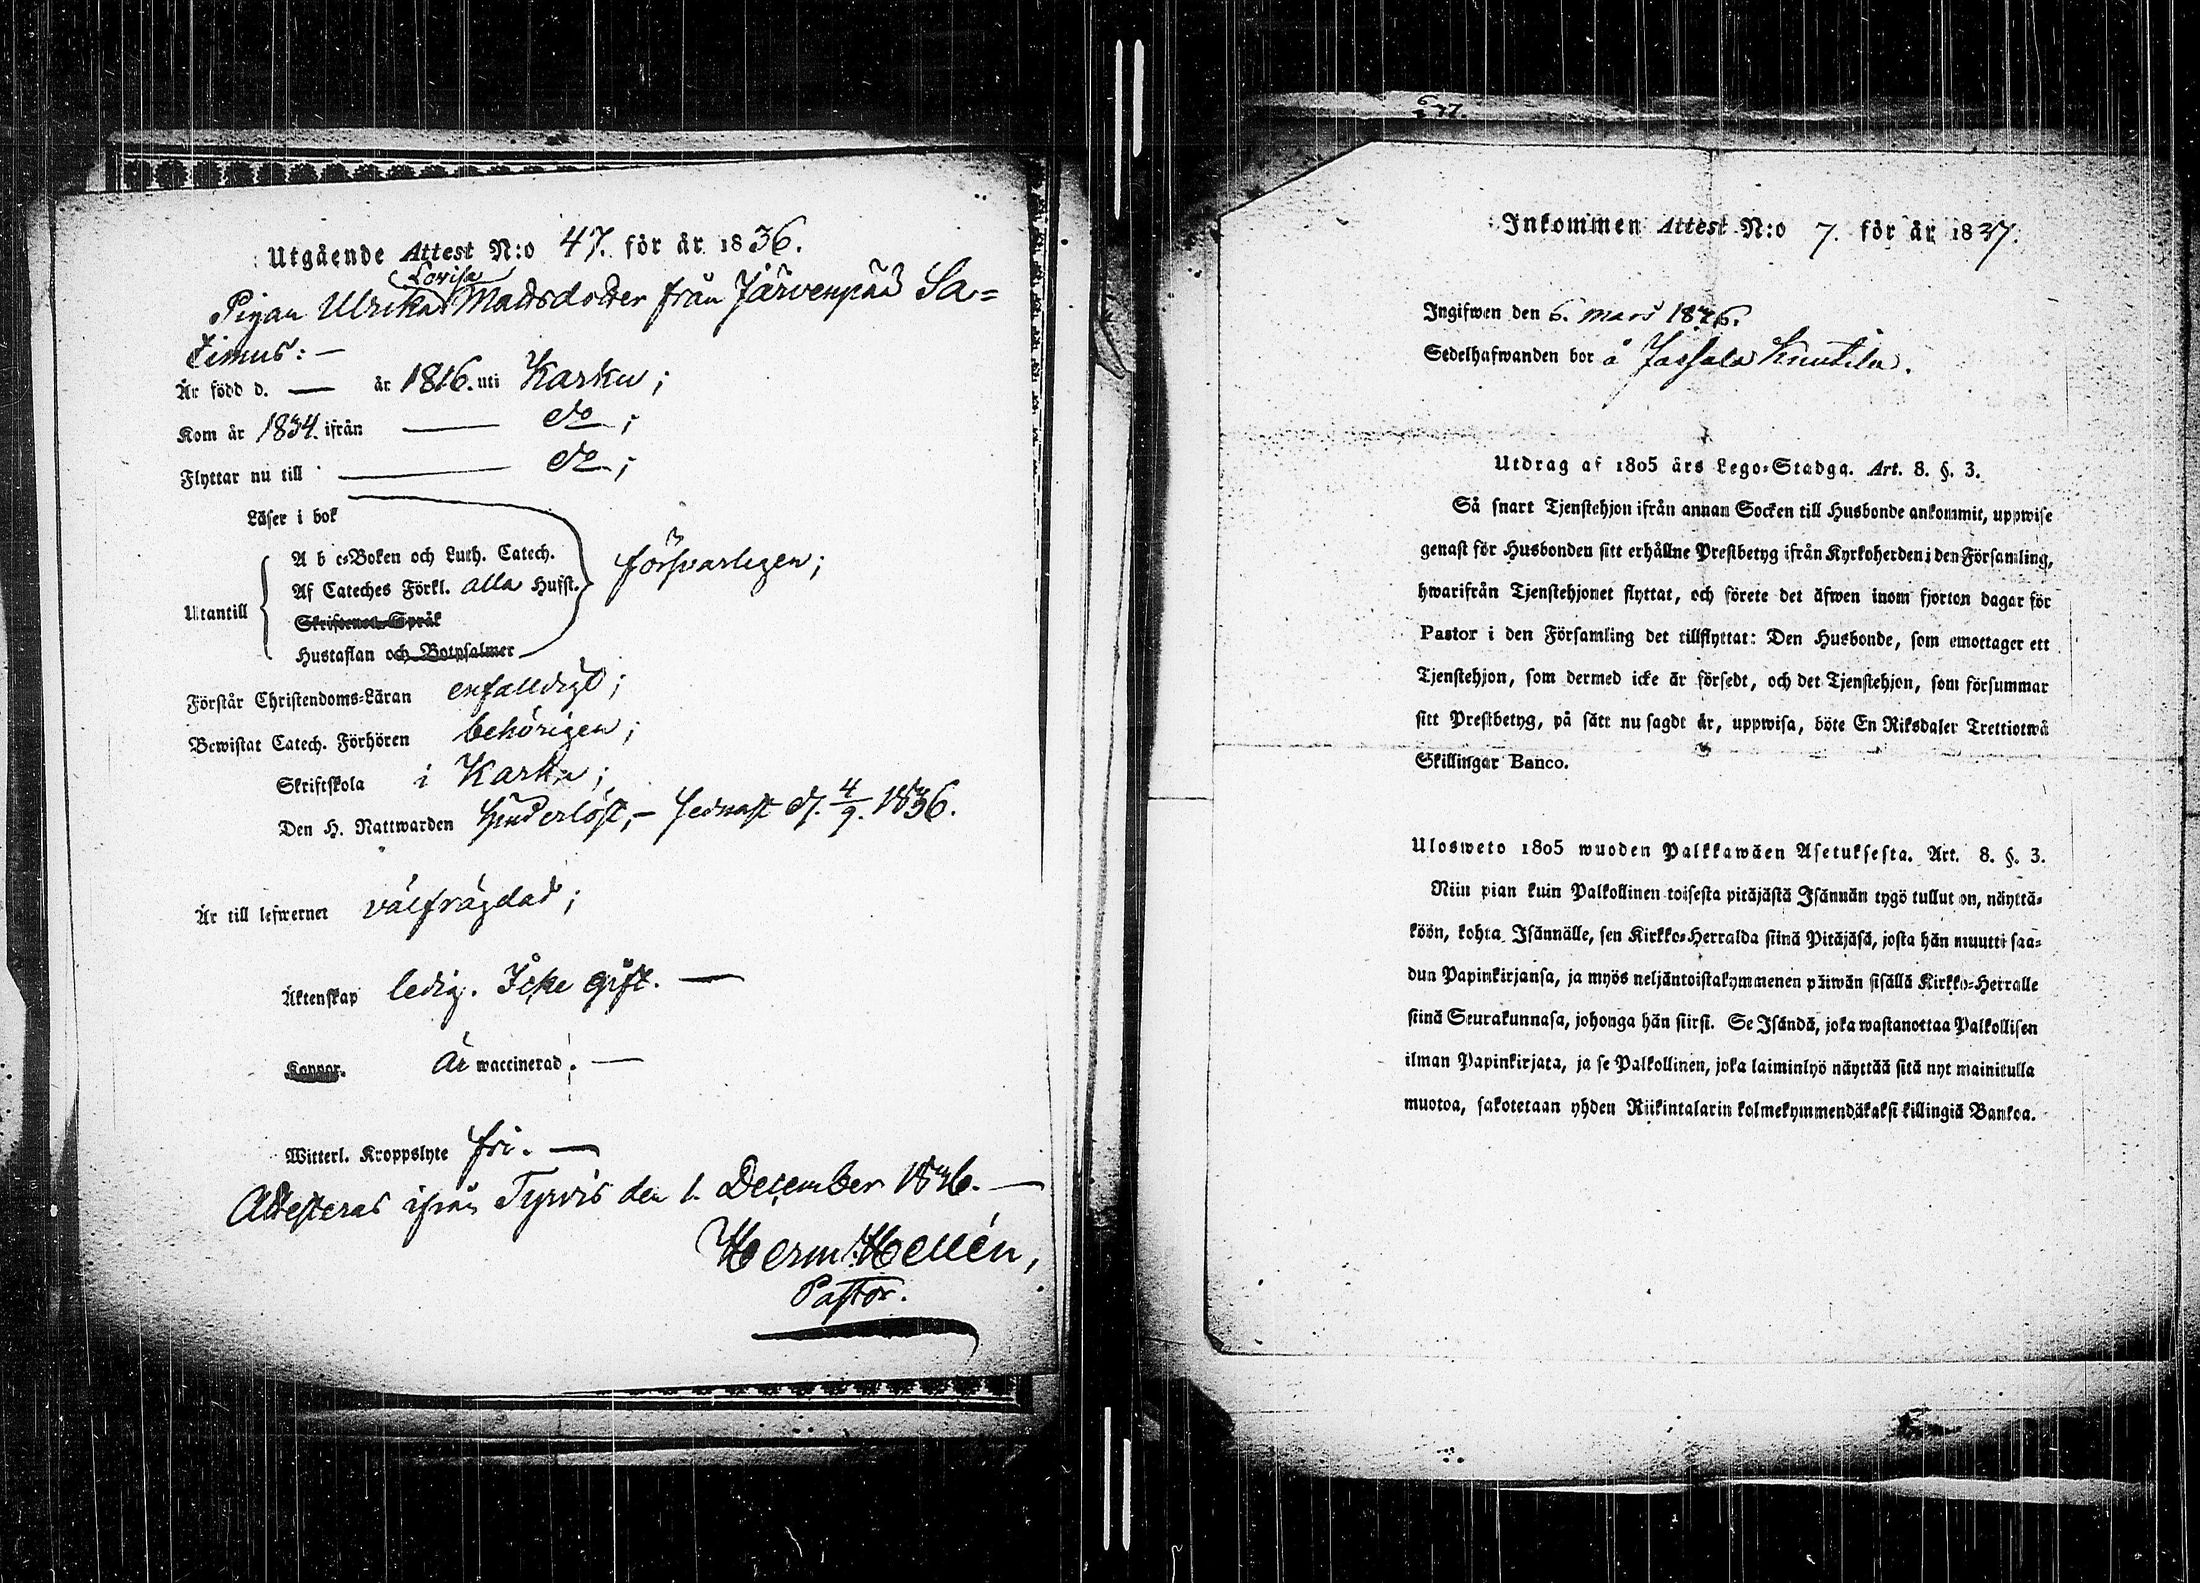 Utgående Attest N:o 47. för år 1836.
Lovisa
Pigan Ulrika Mattsdotter från Järvenpää Sa=
timus: —
Är född d. — år 1816. uti Karku;
Kom år 1834. ifrån — do;
Flyttar nu till — do;
Läser i bok
A b c=Boken och Luth. Catech.
Af Cateches Förkl. alla Hufst. försvarligen;
Utantill
Skriftenes Språk
Hustaflan och Botpsalmer
Förstår Christendoms=Läran enfalldigt;
Bewistat Catech. Förhören behörigen;
Skriftskola i Karku;
Den H. Nattwarden hinderlöst, – sednast d. 4/9. 1836.
Är till lefwernet välfrägdad;
Äktenskap ledig. Icke gift. —
Koppor. Är waccinerad. —
Witterl. Kroppslyte fri. —
Attesteras ifrån Tyrvis den 1. December 1836. —
Herm. Hellén,
Pastor.
6/3 37.
Inkommen Attest N:o 7. för år 1837.
Ingifwen den 6. mars 1836.
Sedelhafwanden bor å Knutila.
Utdrag af 1805 års Lego=Stadga. Art. 8. §. 3.
Så snart Tjenstehjon ifrån annan Socken till Husbonde ankommit, uppwise
genast för Husbonden sitt erhållne Prestbetyg ifrån Kyrkoherden i den Församling,
hwarifrån Tjenstehjonet flyttat, och förete det äfwen inom fjorton dagar för
Pastor i den Församling det tillflyttat: Den Husbonde, som emottager ett
Tjenstehjon, som dermed icke är försedt, och det Tjenstehjon, som försummar
sitt Prestbetyg, på sätt nu sagdt är, uppwisa, böte En Riksdaler Trettiotwå
Skillingar Banco.
Ulosweto 1805 wuoden Palkkawäen Asetuksesta. Art. 8. §. 3.
Niin pian kuin Palkollinen toisesta pitäjästä Isännän tygö tullut on, näyttä=
köön, kohta Isännälle, sen Kirkko=Herralda siinä Pitäjäsä, josta hän muutti saa=
dun Papinkirjansa, ja myös neljäntoistakymmenen päiwän sisällä Kirkko=Herralle
siinä Seurakunnasa, johonga hän siirsi. Se Isändä, joka wastanottaa Palkollisen
ilman Papinkirjata, ja se Palkollinen, joka laiminlyö näyttää sitä nyt mainitulla
muotoa, sakotetaan yhden Riikintalarin kolmekymmendäkaksi killingiä Bankoa.